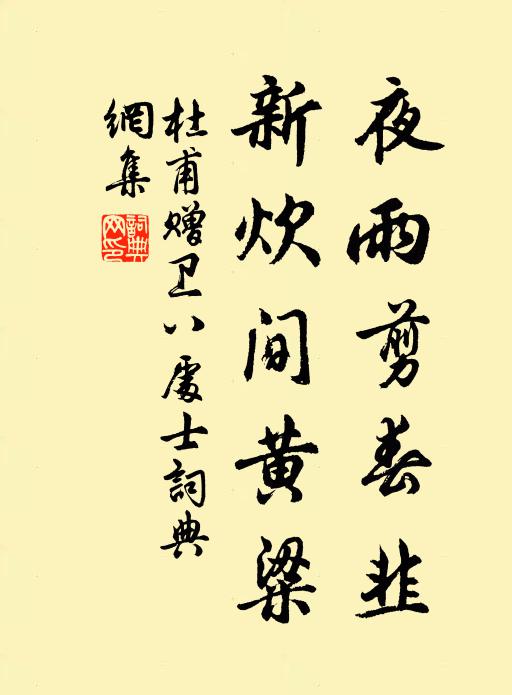 夜雨剪春韭
新炊间黄粱
杜甫赠卫八處士詞典
網集
詞典
网印